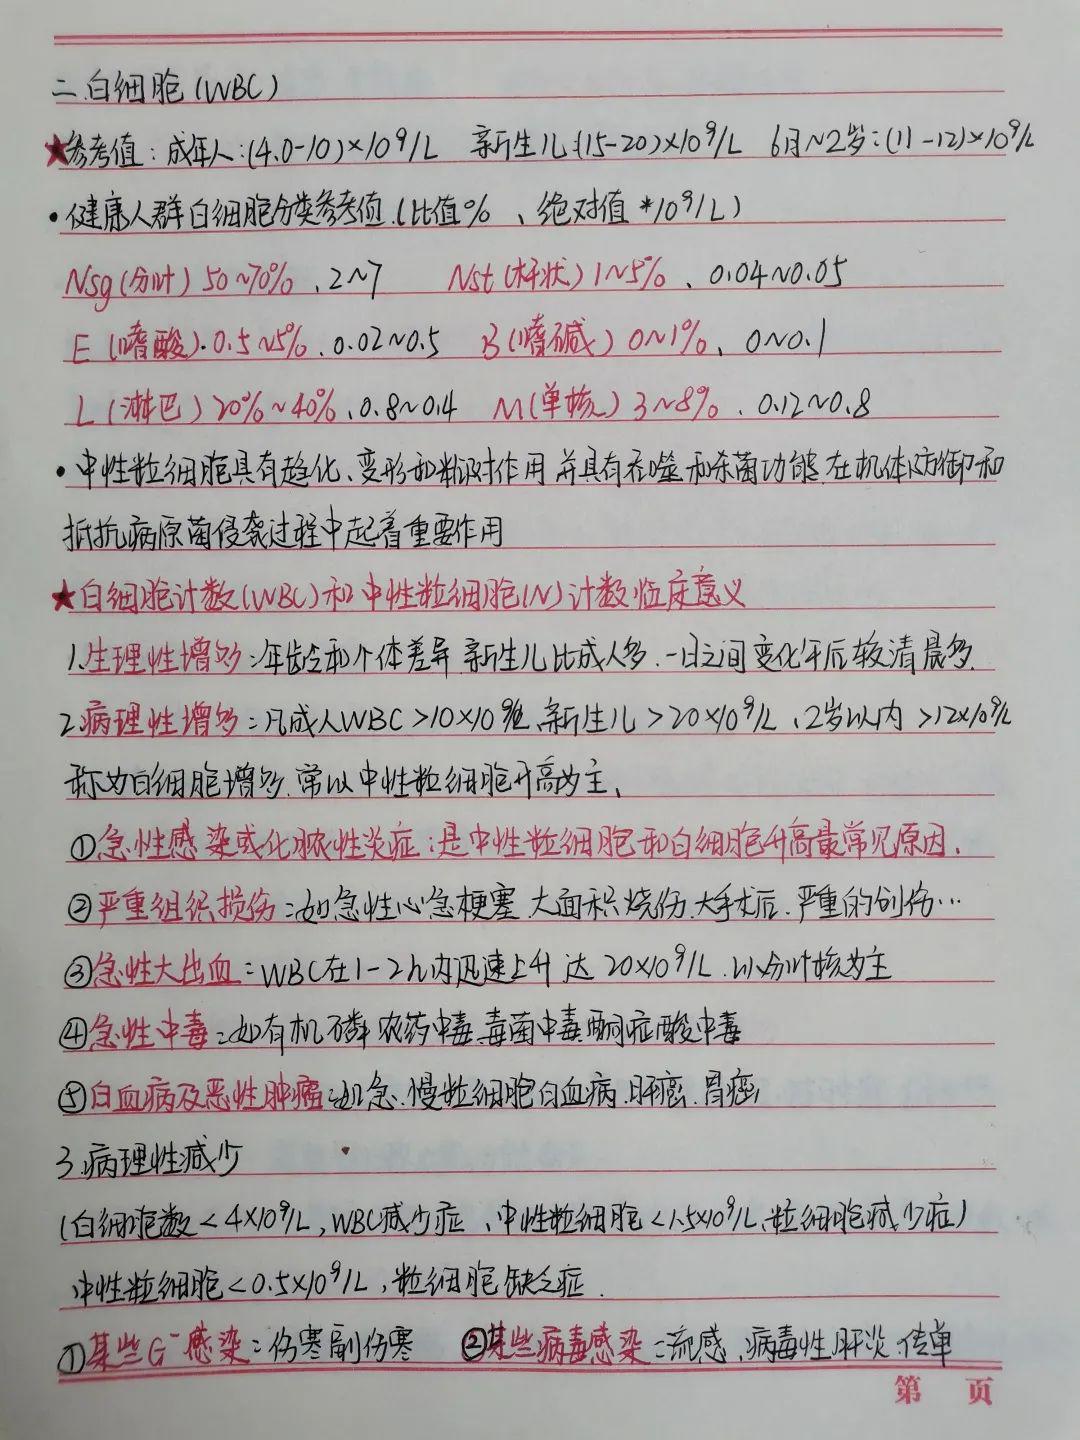 二.白细胞(WBC)
★参考值:成年人:(4.0-10)×10⁹/L 新生儿:(15-20)×10⁹/L 6月~2岁:(11-12)×10⁹/L
•健康人群白细胞分类参考值.(比值%、绝对值*10⁹/L)
Nsg(分叶) 50~70%、2~7 Nst(杆状) 1~5%、0.04~0.05
E(嗜酸).0.5~5%、0.02~0.5 B(嗜碱) 0~1%、0~0.1
L(淋巴) 20%~40%、0.8~0.4 M(单核) 3~8%、0.12~0.8
•中性粒细胞具有趋化、变形和粘附作用 并具有吞噬和杀菌功能.在机体防御和
抵抗病原菌侵袭过程中起着重要作用
★白细胞计数(WBC)和中性粒细胞(N)计数临床意义
1.生理性增多:年龄和个体差异.新生儿比成人多.一日之间变化午后较清晨多.
2.病理性增多:凡成人WBC>10×10⁹/L、新生儿>20×10⁹/L、2岁以内>12×10⁹/L
称为白细胞增多.常以中性粒细胞升高为主、
①急性感染或化脓性炎症:是中性粒细胞和白细胞升高最常见原因.
②严重组织损伤:如急性心急梗塞.大面积烧伤.大手术后.严重的创伤…
③急性大出血:WBC在1-2h内迅速上升 达 20×10⁹/L.以分叶核为主
④急性中毒:如有机磷农药中毒.毒菌中毒.酮症酸中毒
⑤白血病及恶性肿瘤:如急.慢粒细胞白血病.肝癌.胃癌
3.病理性减少
(白细胞数<4×10⁹/L,WBC减少症、中性粒细胞<1.5×10⁹/L、粒细胞减少症)
中性粒细胞<0.5×10⁹/L,粒细胞缺乏症.
①某些G⁻感染:伤寒副伤寒 ②某些病毒感染:流感、病毒性肝炎.传单
第 页